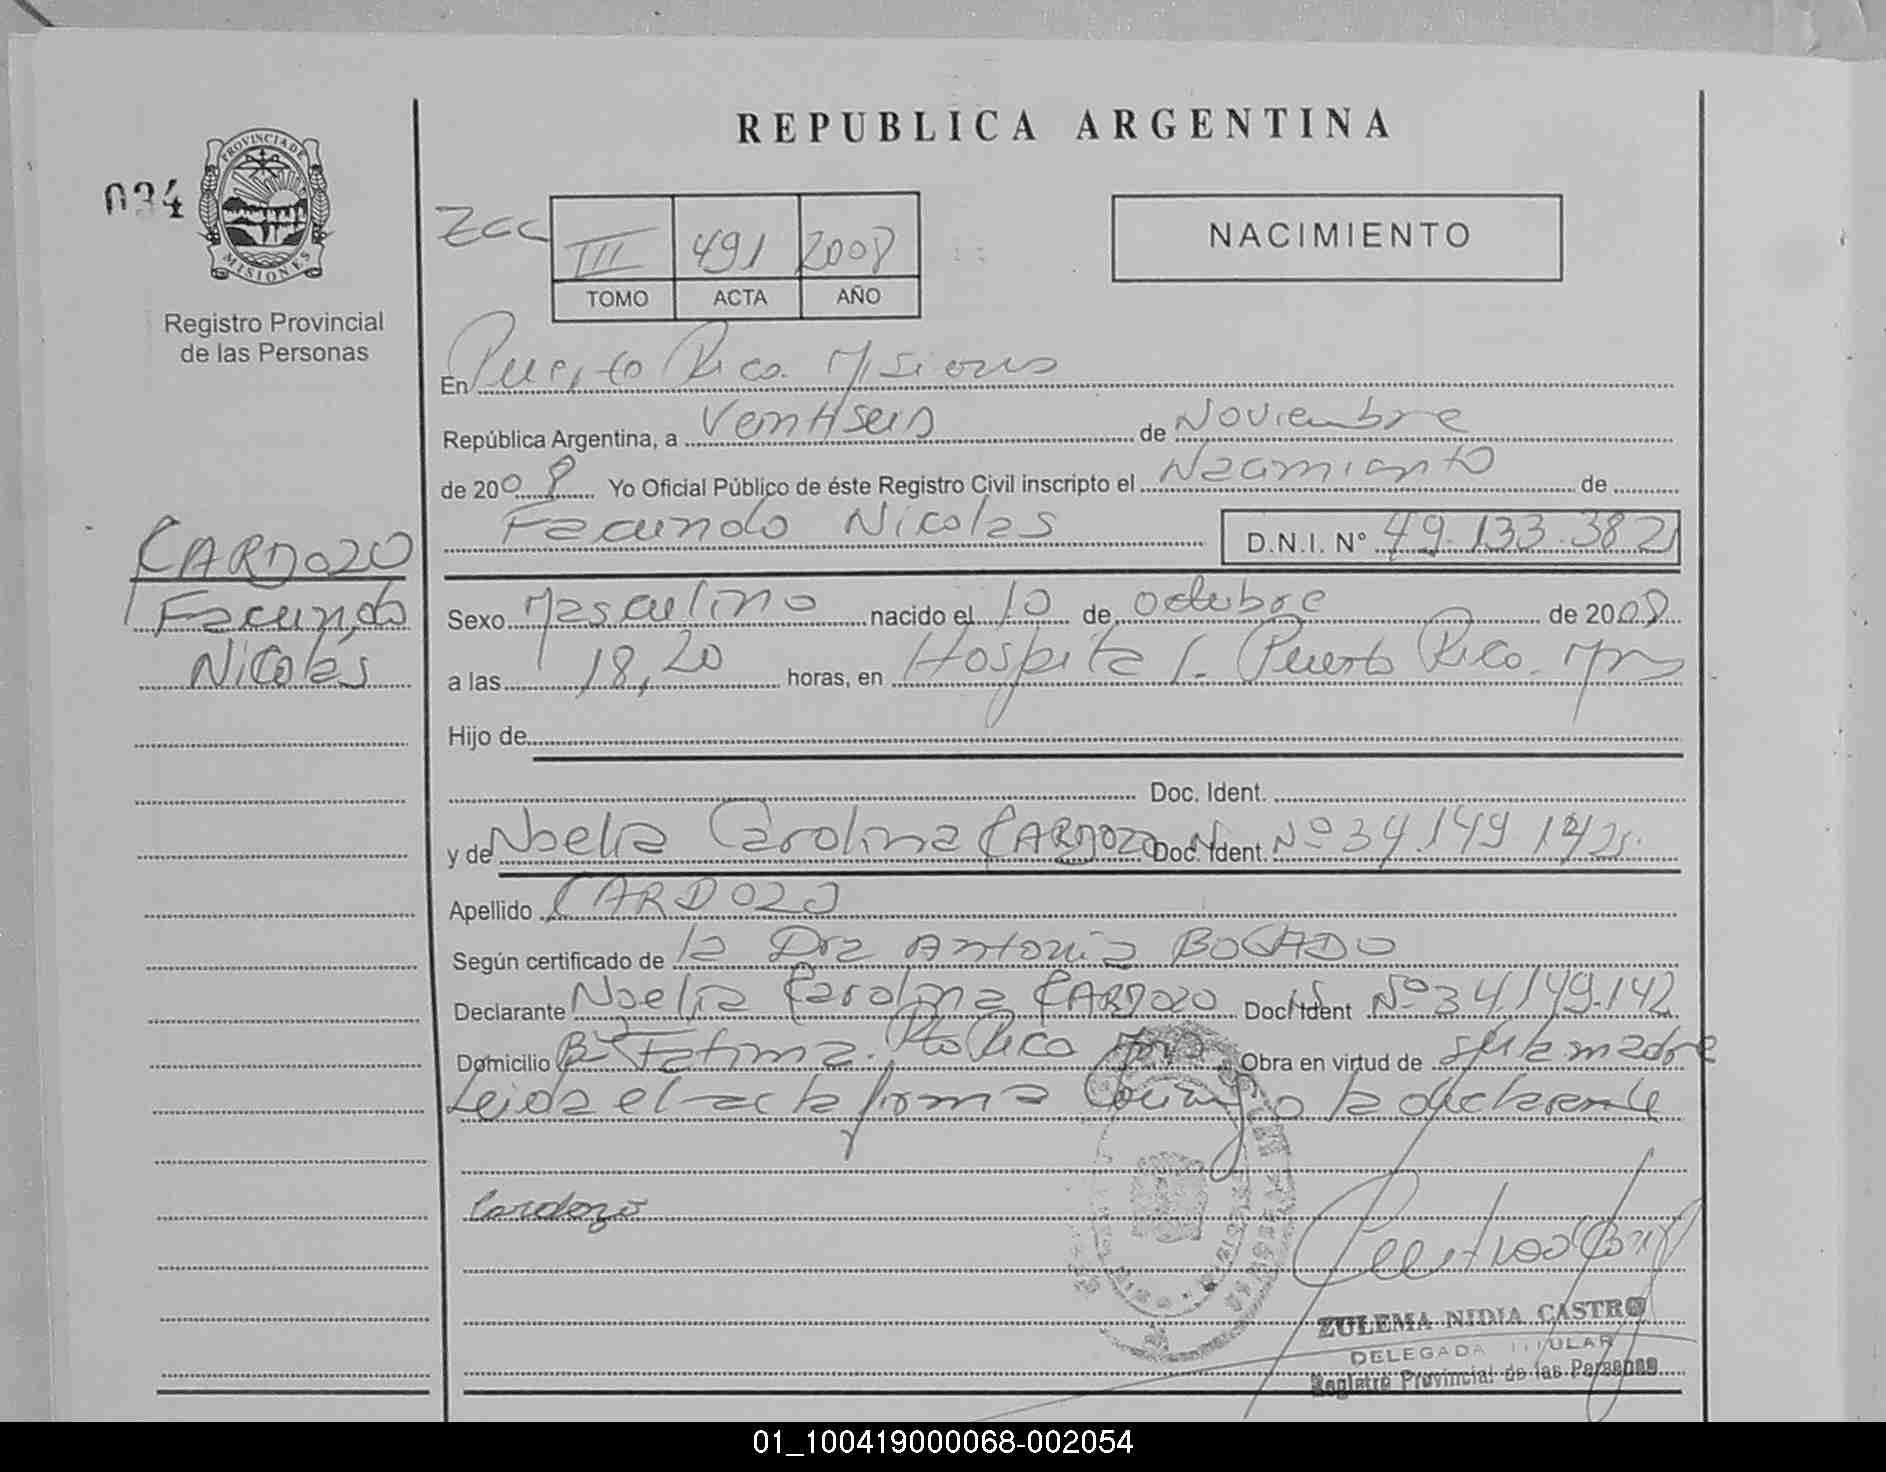 REPUBLICA ARGENTINA
034
PROVINCIA DE
MISIONES
Registro Provincial
de las Personas
III 491 2008
TOMO ACTA AÑO
NACIMIENTO
En Puerto Rico Misiones
República Argentina, a Veintiseis de Noviembre
de 2008 Yo Oficial Público de éste Registro Civil inscripto el Nacimiento de
Facundo Nicolas D.N.I. Nº 49.133.382
CARDOZO
Facundo
Nicolas
Sexo Masculino nacido el 10 de octubre de 2008
a las 18,20 horas, en Hospital. Puerto Rico. Mnes
Hijo de
Doc. Ident.
y de Noelia Carolina CARDOZO Doc. Ident. Nº 34.149.142
Apellido CARDOZO
Según certificado de la Dra Antonia BOGADO
Declarante Noelia Carolina CARDOZO Doc. Ident Nº 34.149.142
Domicilio Bº Fatima. Pto Rico Mnes Obra en virtud de ser la madre
Leida el acta firma conmigo la declarante
Cardozo
ZULEMA NIDIA CASTRO
DELEGADA TITULAR
Registro Provincial de las Personas
01_100419000068-002054